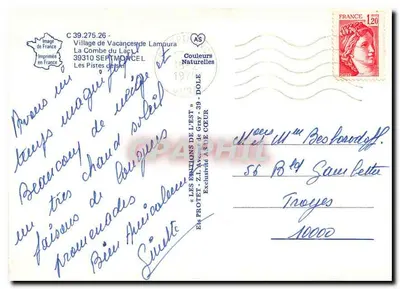 C 39.275.26 -
Village de Vacances de Lamoura
La Combe du Lac
39310 SEPTMONCEL
Les Pistes de
Image
de France
Imprimée
en France
AS
Couleurs
Naturelles
FRANCE
1,20
Avons un
temps magnifique
Beaucoup de neige et
un très chaud soleil
faisons de longues
promenades
Bien Amicalement
Ginette
« LES EDITIONS DE L'EST »
Ets PROTET - Z.I. Avenue de Gray - 39 - DOLE
56 Bld Gambetta
Troyes
10000